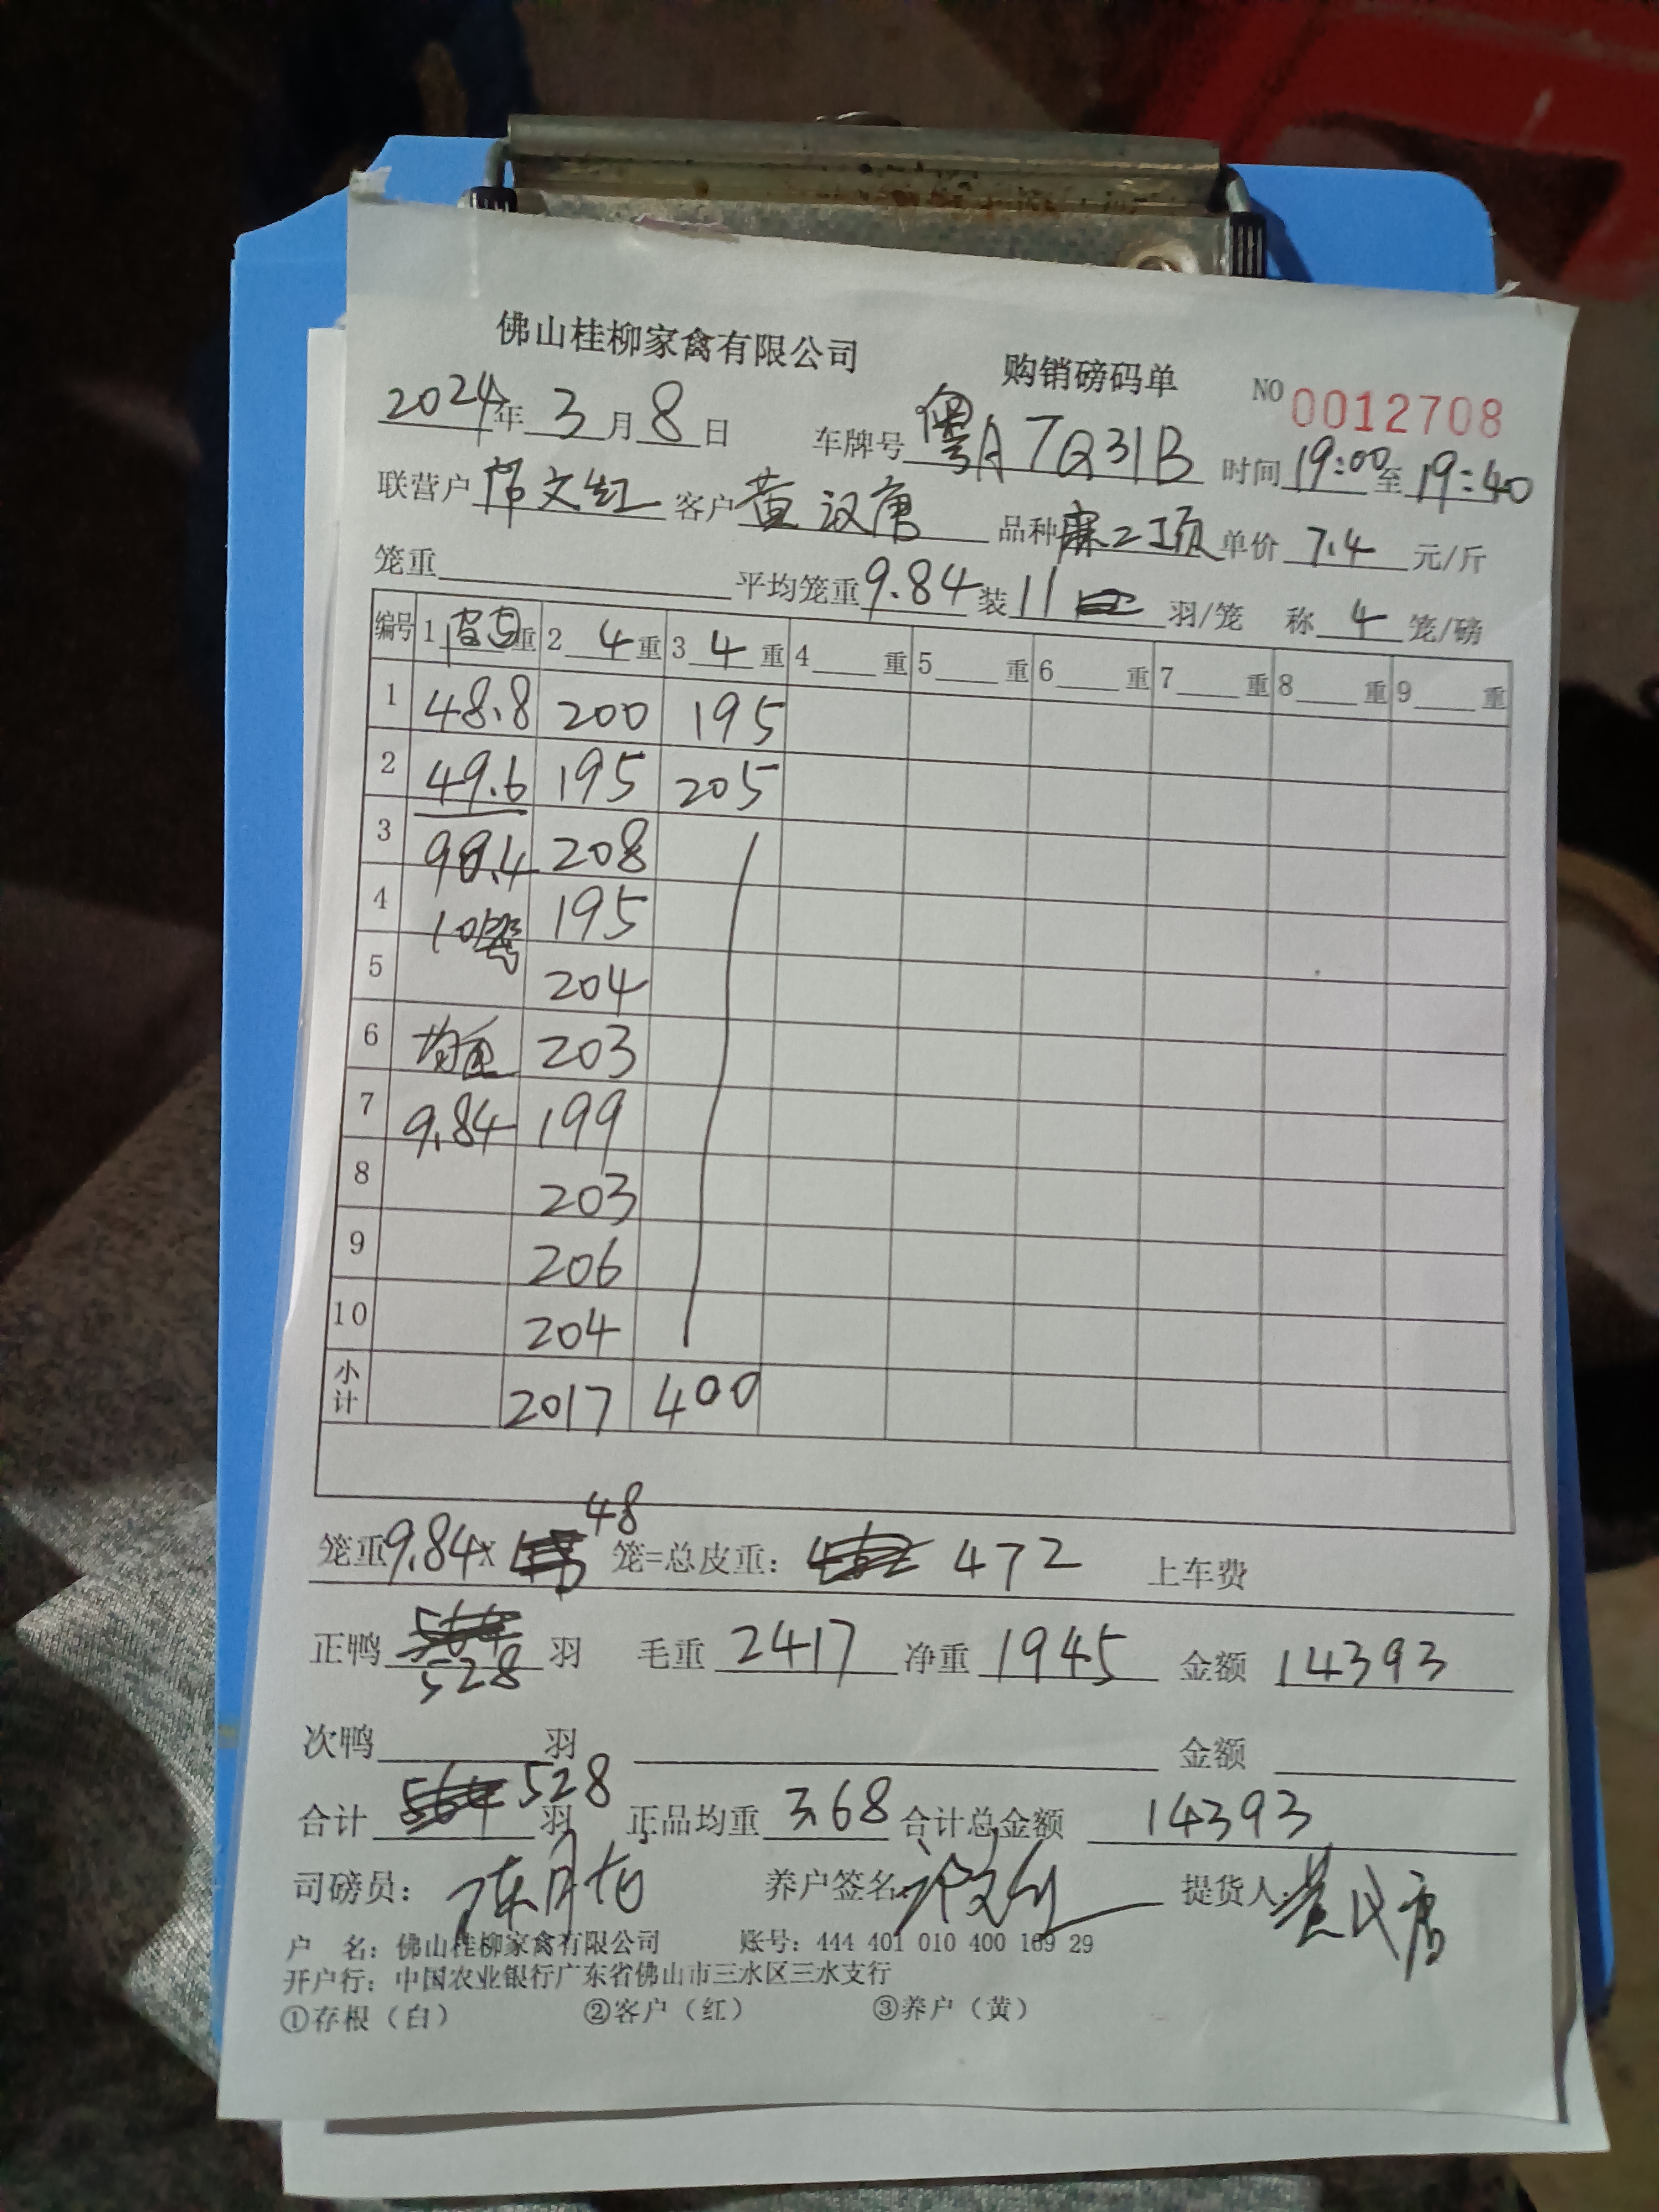 佛山桂柳家禽有限公司 购销磅码单 NO 0012708
2024年 3月 8日 车牌号 粤A7Q31B 时间 19:00 至 19:40
联营户 文红 客户 黄汉唐 品种 麻二项 单价 7.4 元/斤
笼重 平均笼重 9.84 装 11 羽/笼 称 4 笼/磅
编号 1 重 2 4 重 3 4 重 4 重 5 重 6 重 7 重 8 重 9 重
1 48.8 200 195
2 49.6 195 205
3 98.4 208
4 10笼 195
5 204
6 均重 203
7 9.84 199
8 203
9 206
10 204
小计 2017 400
笼重 9.84 × 48 笼=总皮重: 472 上车费
正鸭 528 羽 毛重 2417 净重 1945 金额 14393
次鸭 羽 金额
合计 528 羽 正品均重 3.68 合计总金额 14393
司磅员: 养户签名: 提货人: 黄汉唐
户 名: 佛山桂柳家禽有限公司 账号: 444 401 010 400 169 29
开户行: 中国农业银行广东省佛山市三水区三水支行
①存根（白） ②客户（红） ③养户（黄）